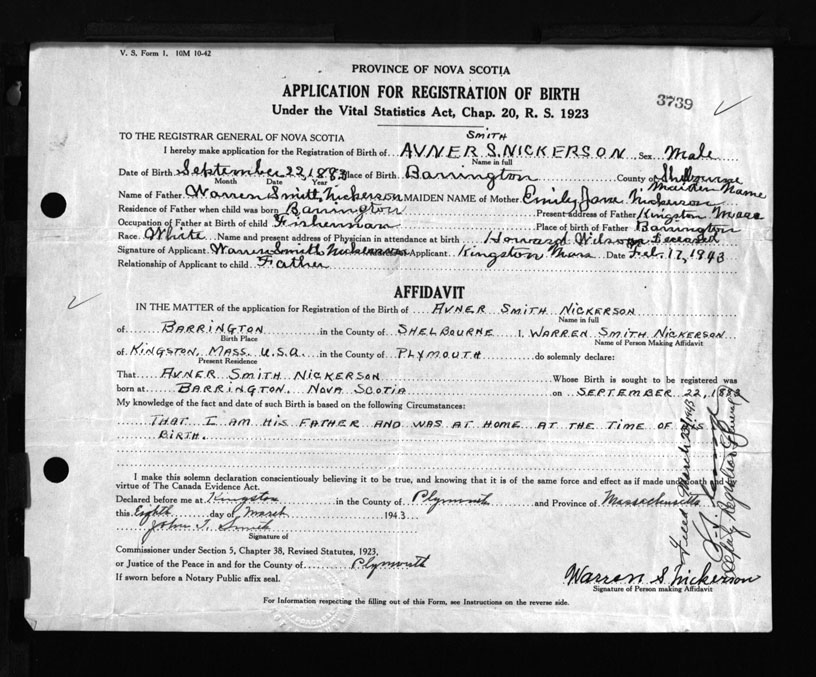 V. S. Form 1. 10M 10-42
PROVINCE OF NOVA SCOTIA
APPLICATION FOR REGISTRATION OF BIRTH
3739
Under the Vital Statistics Act, Chap. 20, R. S. 1923
TO THE REGISTRAR GENERAL OF NOVA SCOTIA
SMITH
I hereby make application for the Registration of Birth of AVNER S. NICKERSON Sex Male
Name in full
Date of Birth September 22, 1883 Place of Birth Barrington County of Shelburne
Month Date Year
Maiden Name
Name of Father Warren Smith Nickerson MAIDEN NAME of Mother Emily Jane Nickerson
Residence of Father when child was born Barrington Present address of Father Kingston Mass
Occupation of Father at Birth of child Fisherman Place of birth of Father Barrington
Race White Name and present address of Physician in attendance at birth Howard Wilson Deceased
Signature of Applicant Warren Smith Nickerson Applicant Kingston Mass Date Feb. 17, 1943
Relationship of Applicant to child Father
AFFIDAVIT
IN THE MATTER of the application for Registration of the Birth of AVNER SMITH NICKERSON
Name in full
of BARRINGTON in the County of SHELBOURNE I, WARREN SMITH NICKERSON
Birth Place Name of Person Making Affidavit
of KINGSTON, MASS. U.S.A. in the County of PLYMOUTH do solemnly declare:
Present Residence
That AVNER SMITH NICKERSON Whose Birth is sought to be registered was
born at BARRINGTON, NOVA SCOTIA on SEPTEMBER 22, 1883
My knowledge of the fact and date of such Birth is based on the following Circumstances:
THAT I AM HIS FATHER AND WAS AT HOME AT THE TIME OF HIS
BIRTH.
I make this solemn declaration conscientiously believing it to be true, and knowing that it is of the same force and effect as if made under oath and by
virtue of The Canada Evidence Act.
Declared before me at Kingston in the County of Plymouth and Province of Massachusetts
this Eighth day of March 1943
John T. Smith
Signature of
Commissioner under Section 5, Chapter 38, Revised Statutes, 1923,
or Justice of the Peace in and for the County of Plymouth
If sworn before a Notary Public affix seal.
Warren S. Nickerson
Signature of Person making Affidavit
For Information respecting the filling out of this Form, see Instructions on the reverse side.